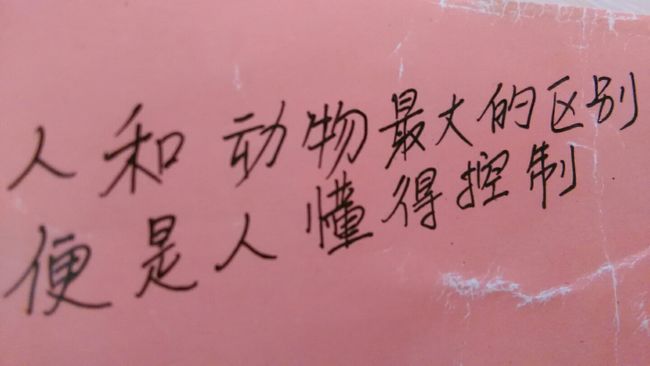 人和动物最大的区别
便是人懂得控制